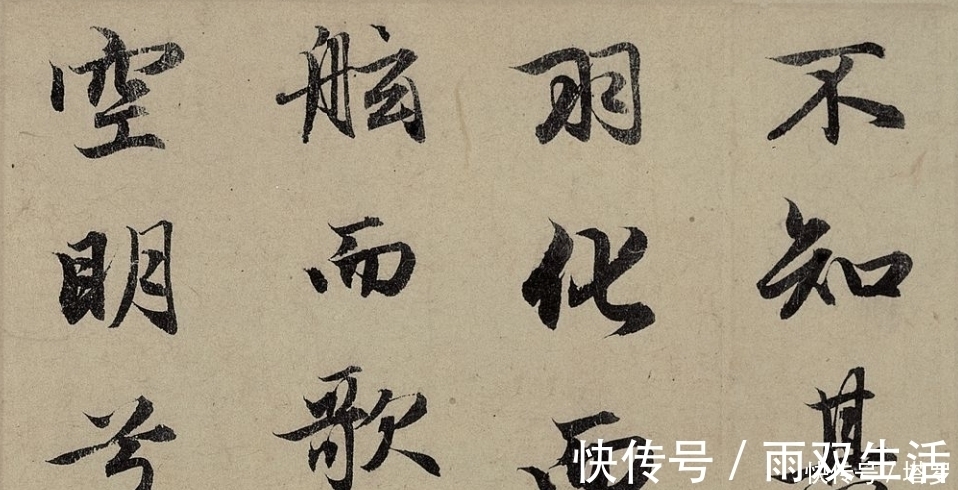 不知其
羽化而
舷而歌
空明兮
快传号 / 雨双生活
快传号